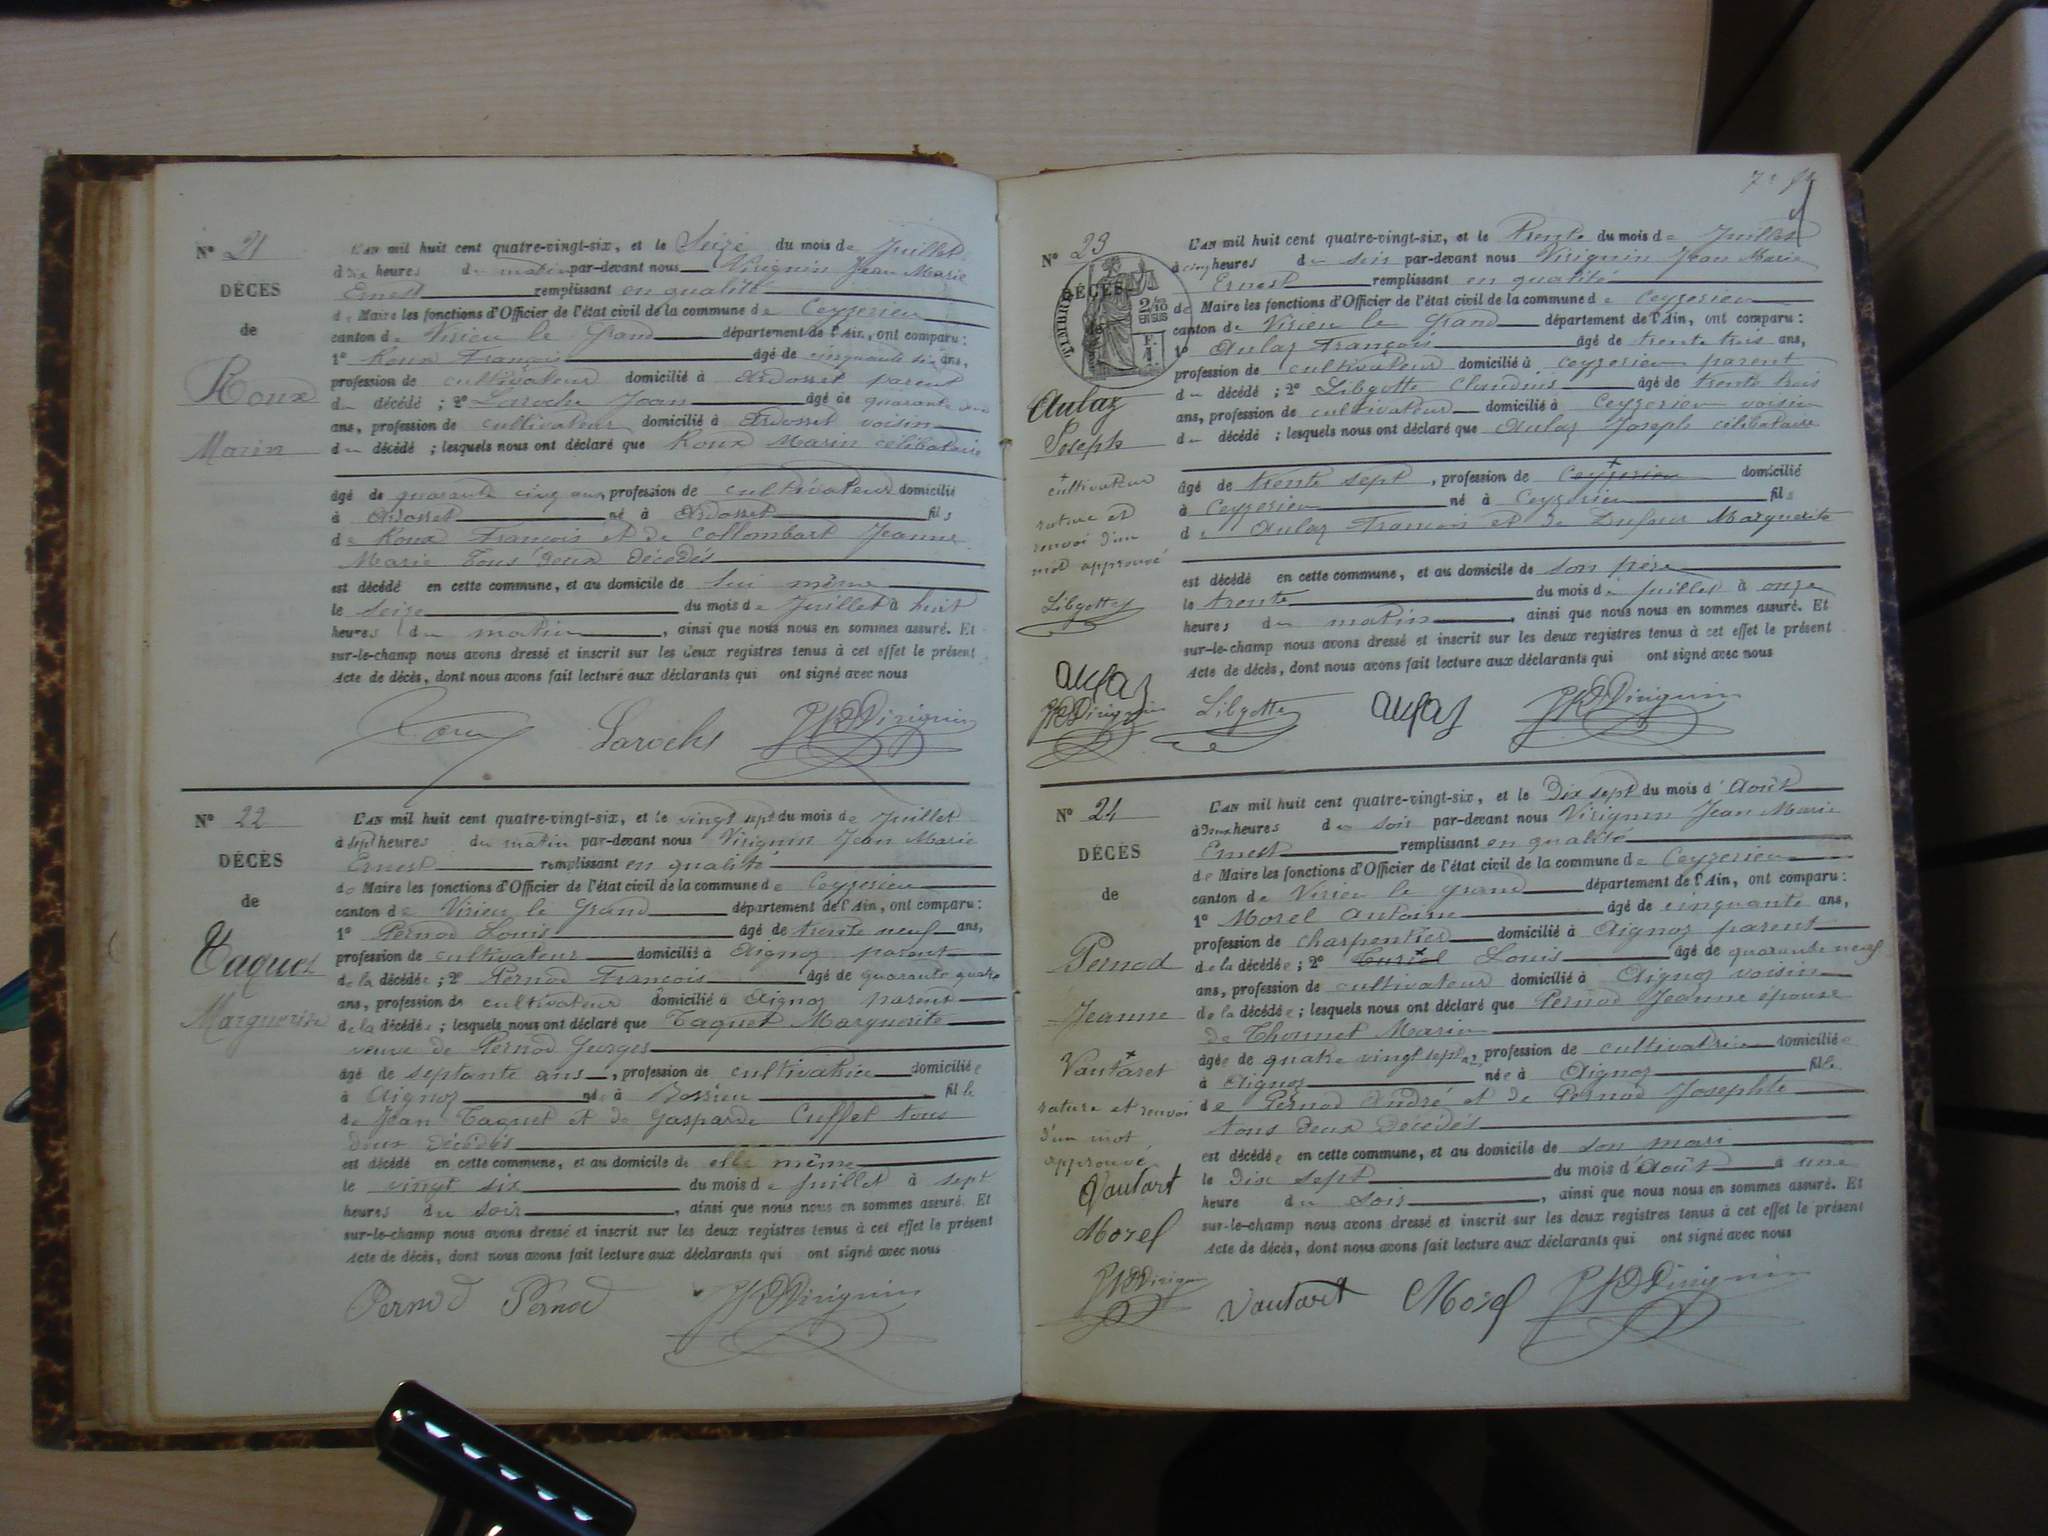 N° 21
DÉCÈS
de
Roux
Marin
L'AN mil huit cent quatre-vingt-six, et le Seize du mois de Juillet
à dix heures du matin par-devant nous Virignin Jean Marie
Ernest remplissant en qualité
de Maire les fonctions d'Officier de l'état civil de la commune de Ceyzerieu
canton de Virieu le Grand département de l'Ain, ont comparu:
1° Roux François âgé de cinquante six ans,
profession de cultivateur domicilié à Ardosset parent
du décédé ; 2° Laroche Jean âgé de quarante
ans, profession de cultivateur domicilié à Ardosset voisin
du décédé ; lesquels nous ont déclaré que Roux Marin célibataire
âgé de quarante cinq ans, profession de cultivateur domicilié
à Ardosset né à Ardosset fils
de Roux François et de Collombart Jeanne
Marie tous deux décédés
est décédé en cette commune, et au domicile de lui même
le seize du mois de Juillet à huit
heures du matin, ainsi que nous nous en sommes assuré. Et
sur-le-champ nous avons dressé et inscrit sur les deux registres tenus à cet effet le présent
Acte de décès, dont nous avons fait lecture aux déclarants qui ont signé avec nous
Roux Laroche JMEVirignin
N° 22
DÉCÈS
de
Taquet
Marguerite
L'AN mil huit cent quatre-vingt-six, et le vingt sept du mois de Juillet
à sept heures du matin par-devant nous Virignin Jean Marie
Ernest remplissant en qualité
de Maire les fonctions d'Officier de l'état civil de la commune de Ceyzerieu
canton de Virieu le Grand département de l'Ain, ont comparu:
1° Pernod Louis âgé de trente neuf ans,
profession de cultivateur domicilié à Aignoz parent
de la décédée ; 2° Pernod François âgé de quarante quatre
ans, profession de cultivateur domicilié à Aignoz parent
de la décédée ; lesquels nous ont déclaré que Taquet Marguerite
veuve de Pernod Georges
âgé de septante ans, profession de cultivatrice domiciliée
à Aignoz née à Bossieu fille
de Jean Taquet et de Gasparde Cuffet tous
deux décédés
est décédé en cette commune, et au domicile de elle même
le vingt six du mois de Juillet à sept
heures du soir, ainsi que nous nous en sommes assuré. Et
sur-le-champ nous avons dressé et inscrit sur les deux registres tenus à cet effet le présent
Acte de décès, dont nous avons fait lecture aux déclarants qui ont signé avec nous
Pernod Pernod JMEVirignin
N° 23
DÉCÈS
de
TIMBRE
2/10
EN SUS
F.
1
Aulaz
Joseph
+ cultivateur
rature et
renvoi d'un
mot approuvé
Libgotte
Aulaz
JMEVirignin
L'AN mil huit cent quatre-vingt-six, et le Trente du mois de Juillet
à cinq heures du soir par-devant nous Virignin Jean Marie
Ernest remplissant en qualité
de Maire les fonctions d'Officier de l'état civil de la commune de Ceyzerieu
canton de Virieu le Grand département de l'Ain, ont comparu:
1° Aulaz François âgé de trente trois ans,
profession de cultivateur domicilié à Ceyzerieu parent
du décédé ; 2° Libgotte Claudius âgé de trente trois
ans, profession de cultivateur domicilié à Ceyzerieu voisin
du décédé ; lesquels nous ont déclaré que Aulaz Joseph célibataire
âgé de trente sept, profession de Ceyzerieu + domicilié
à Ceyzerieu né à Ceyzerieu fils
de Aulaz François et de Dufour Marguerite
est décédé en cette commune, et au domicile de son père
le trente du mois de juillet à onze
heures du matin, ainsi que nous nous en sommes assuré. Et
sur-le-champ nous avons dressé et inscrit sur les deux registres tenus à cet effet le présent
Acte de décès, dont nous avons fait lecture aux déclarants qui ont signé avec nous
Libgotte Aulaz JMEVirignin
N° 24
DÉCÈS
de
Pernod
Jeanne
+ Vautaret
rature et renvoi
d'un mot
approuvé
Vautart
Morel
JMEVirignin
L'AN mil huit cent quatre-vingt-six, et le Dix sept du mois d'Août
à deux heures du soir par-devant nous Virignin Jean Marie
Ernest remplissant en qualité
de Maire les fonctions d'Officier de l'état civil de la commune de Ceyzerieu
canton de Virieu le Grand département de l'Ain, ont comparu:
1° Morel Antoine âgé de cinquante ans,
profession de charpentier domicilié à Aignoz parent
de la décédée ; 2° + Louis âgé de quarante neuf
ans, profession de cultivateur domicilié à Aignoz voisin
de la décédée ; lesquels nous ont déclaré que Pernod Jeanne épouse
de Thonnet Marin
âgée de quatre vingt sept ans, profession de cultivatrice domiciliée
à Aignoz née à Aignoz fille
de Pernod André et de Pernod Josephte
tous deux décédés
est décédée en cette commune, et au domicile de son mari
le dix sept du mois d'Août à une
heure du soir, ainsi que nous nous en sommes assuré. Et
sur-le-champ nous avons dressé et inscrit sur les deux registres tenus à cet effet le présent
Acte de décès, dont nous avons fait lecture aux déclarants qui ont signé avec nous
Vautart Morel JMEVirignin